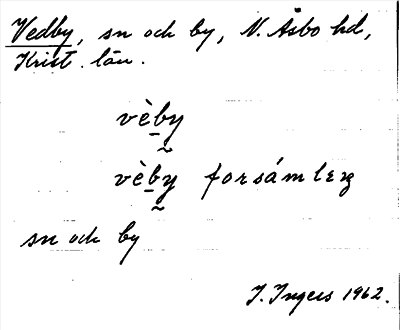 Vedby, sn och by, N. Åsbo hd,
Krist. län.
vèb̲y̰
vèb̲y̰ forsámlıŋ
sn och by
J. Ingers 1962.